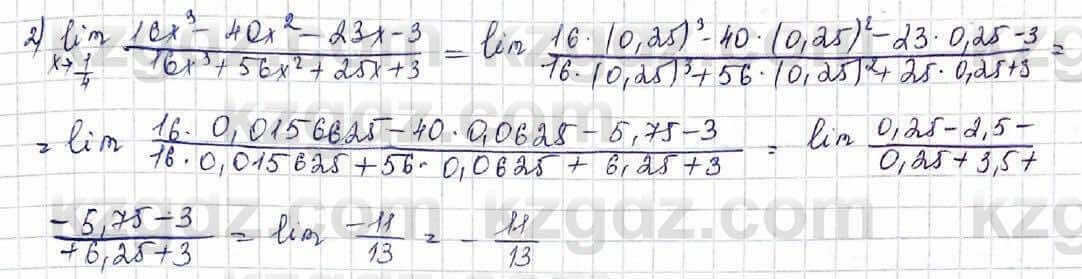 2) lim 16x³ - 40x² - 23x - 3 / 16x³ + 56x² + 25x + 3 = lim 16 · (0,25)³ - 40 · (0,25)² - 23 · 0,25 - 3 / 16 · (0,25)³ + 56 · (0,25)² + 25 · 0,25 + 3 =
x→1/4
= lim 16 · 0,0156625 - 40 · 0,0625 - 5,75 - 3 / 16 · 0,015625 + 56 · 0,0625 + 6,25 + 3 = lim 0,25 - 2,5 - / 0,25 + 3,5 +
-5,75 - 3 / +6,25 + 3 = lim -11 / 13 = - 11 / 13
kzgdz.com